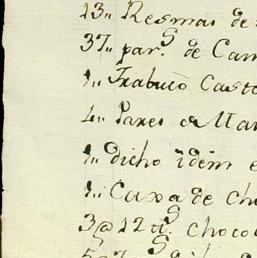 13,, Resmas de
37,, par.s de Cam
1,, Trabuco Casto
4,, Pares de Man
1,, dicho idem e
1,, Caxa de cho
3@12 tt.s choco